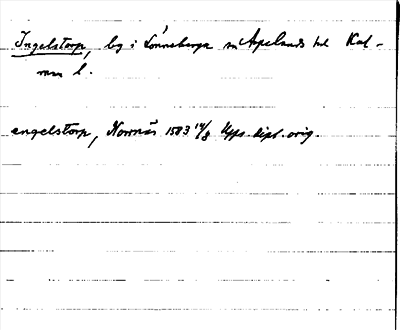 Ingelstorp, by i Lönneberga sn Aspelands hd Kal-
mar l.
engelstorp, Norrnäs 1583 14/8 Upps. dipl. orig.